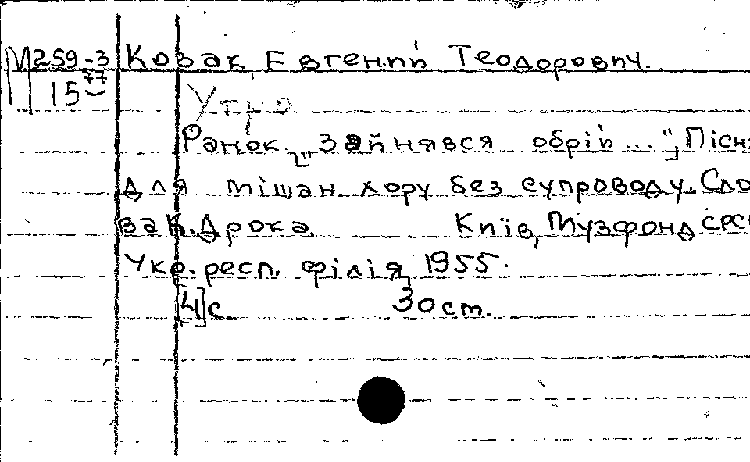 М259-3 Козак, Евгений Теодорович.
1577
Утро
Ранок. [„Зайнявся обрій..."] Пісня
для мішан. хору без супроводу. Сло
ва К. Дрока. Київ, Музфонд СРСР
Укр. респ. філія, 1955.
[4]с. 30 cm.